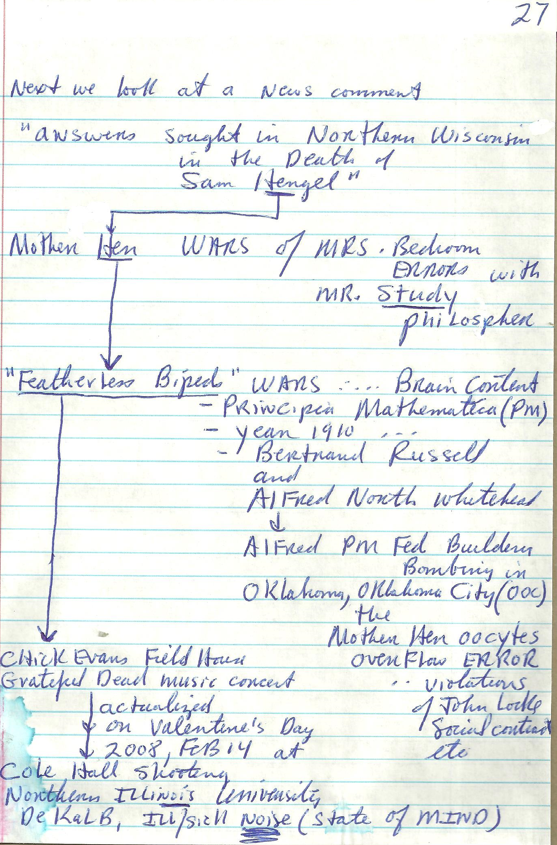 27
Next we look at a News comment
"answers sought in Northern Wisconsin
in the Death of
Sam Hengel"
Mother Hen WARS of MRS. Bedroom
ERRORS with
MR. Study
philospher
"Featherless Bipeds" WARS .... Brain Content
- Principia Mathematica (PM)
- year 1910 ...
- Bertrand Russell
and
AlFred North whitehead
AlFred PM Fed Building
Bombing in
OKlahoma, OKlahoma City (OOC)
the
Mother Hen oocytes
overFlow ERROR
.. violations
of John Locke
Social contract
etc
CHick Evans Field House
Grateful Dead music concert
actualized
on Valentine's Day
2008, FEB 14 at
Cole Hall Shooting
Northern Illinois University
DeKalB, Ill/sick Noise (state of MIND)